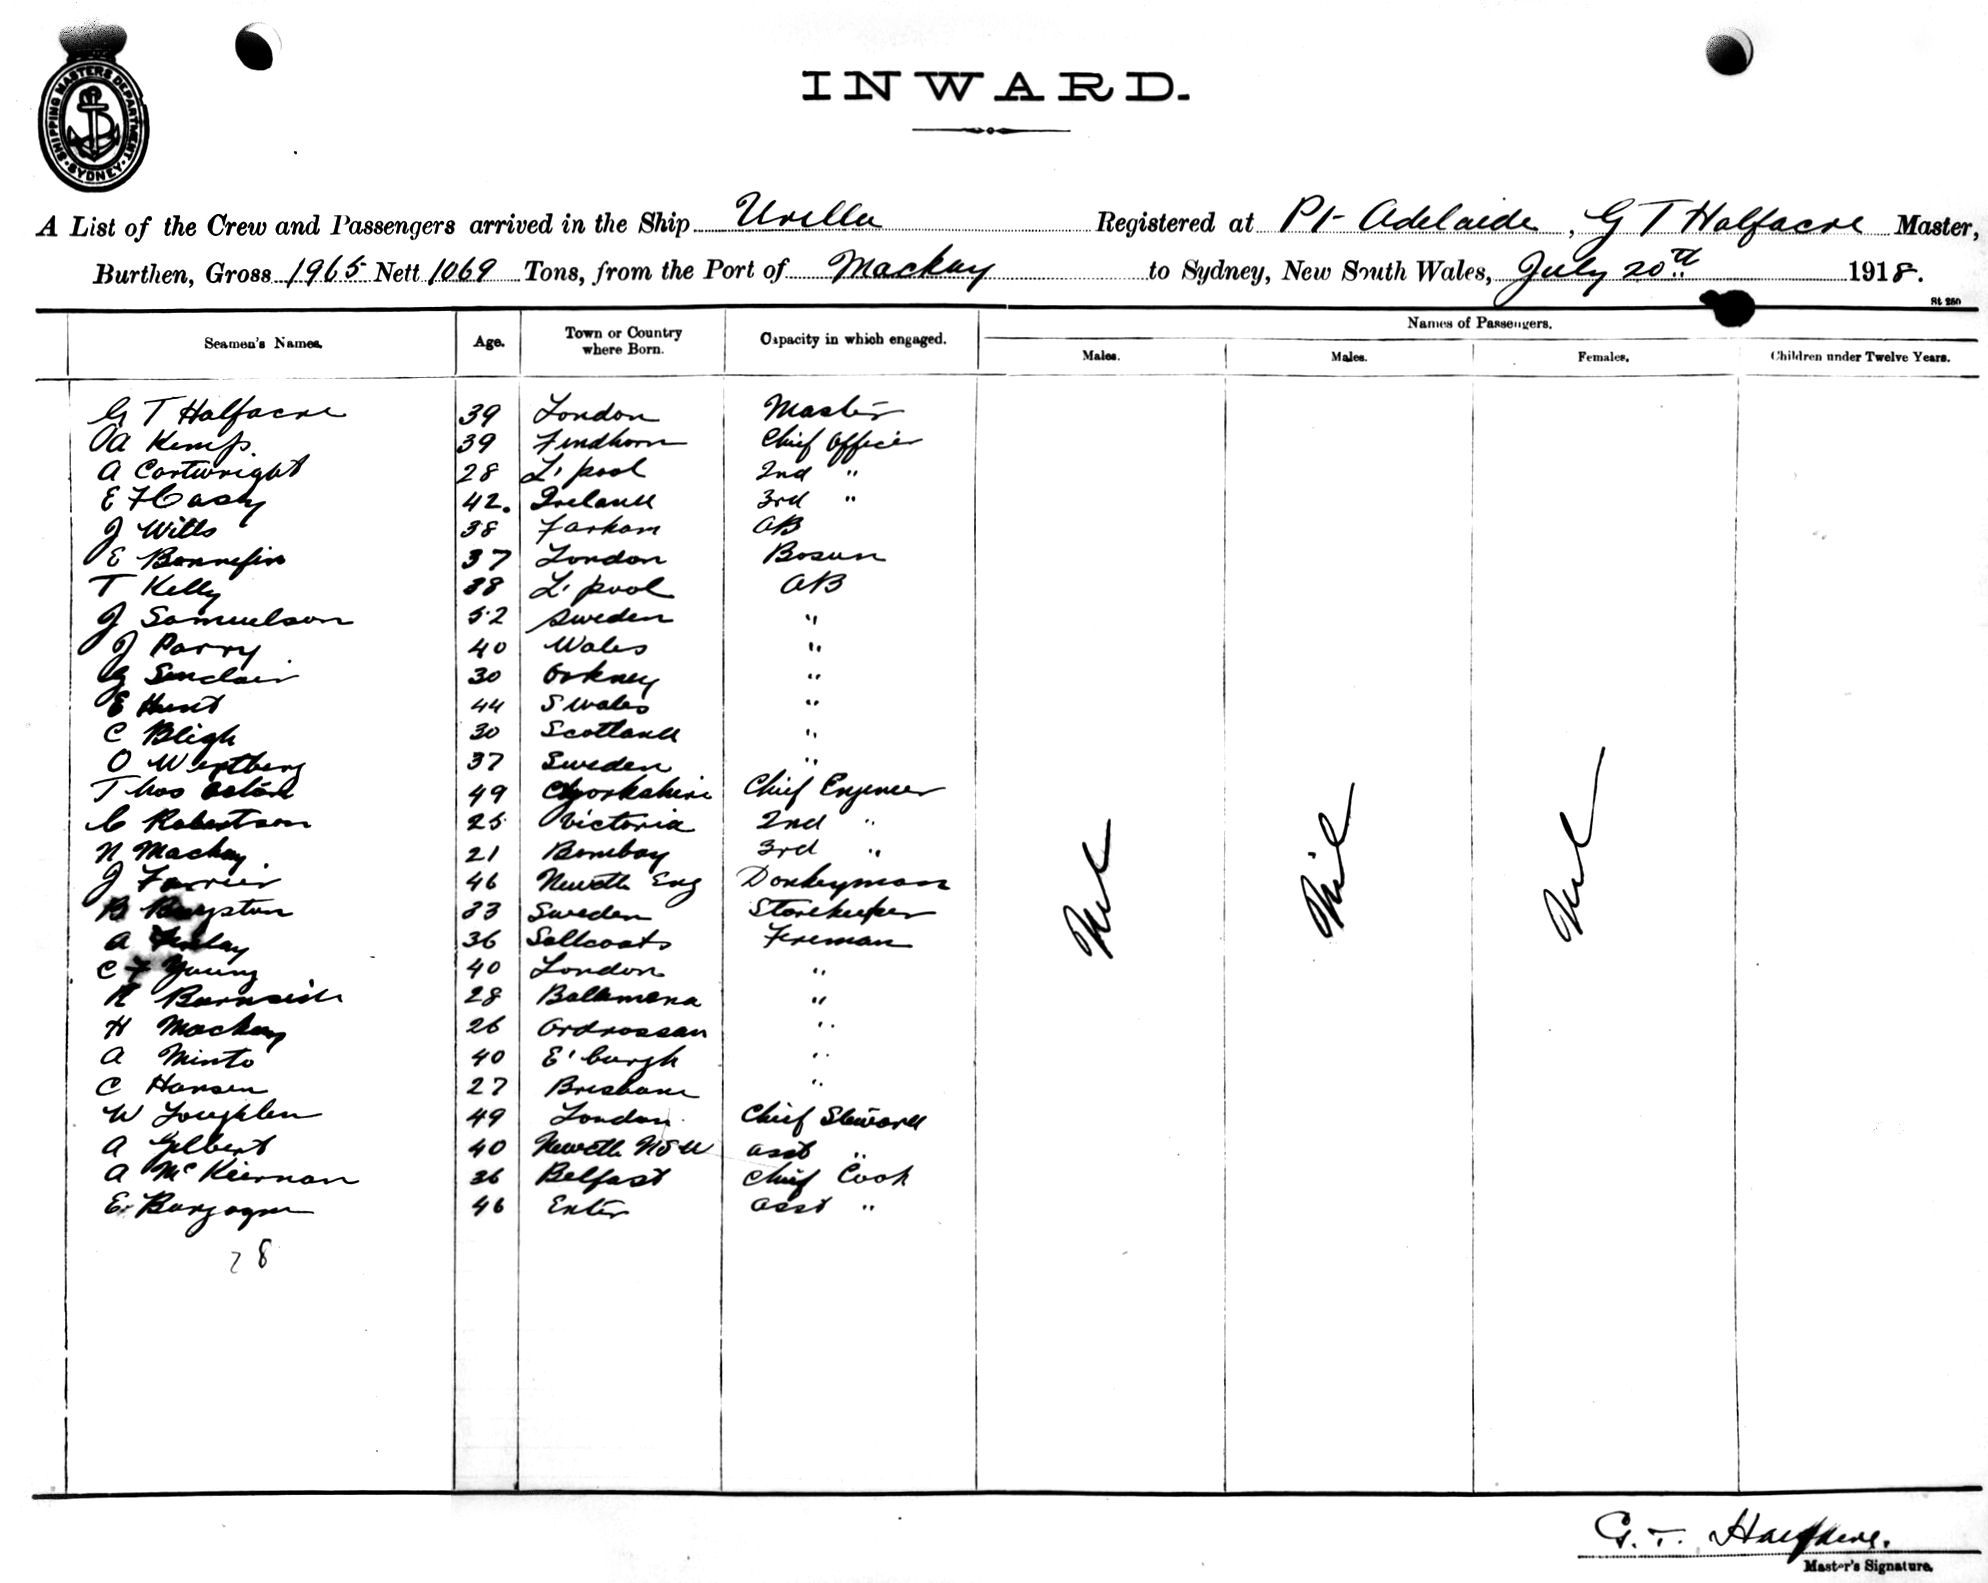 SHIPPING MASTERS DEPARTMENT SYDNEY
INWARD.
A List of the Crew and Passengers arrived in the Ship Urilla Registered at Pt Adelaide, G T Halfacre Master,
Burthen, Gross 1965 Nett 1069 Tons, from the Port of Mackay to Sydney, New South Wales, July 20th 1918.
St 280
Seamen's Names. Age. Town or Country where Born. Capacity in which engaged. Names of Passengers.
Males. Males. Females. Children under Twelve Years.
G T Halfacre 39 London Master
A Kemp. 39 Findhorn Chief Officer
A Cartwright 28 L'pool 2nd "
E F Casy 42. Ireland 3rd "
J Wills 38 Farham AB
E Bonnefin 37 London Bosun
T Kelly 38 L'pool AB
J Samuelson 52 Sweden "
J Parry 40 Wales "
G Sinclair 30 Orkney "
E Hunt 44 S Wales "
C Bligh 30 Scotland "
O Wertberg 37 Sweden "
Thos 49 Yorkshire Chief Engineer
C Robertson 25 Victoria 2nd "
N Mackay 21 Bombay 3rd "
J Farrier 46 Newctle Eng Donkeyman
B 33 Sweden Storekeeper
A Finlay 36 Saltcoats Fireman
C F Young 40 London "
R Burnside 28 Balamena "
H Mackay 26 Ardrossan "
A Minto 40 E'burgh "
C Hansen 27 Brisbane "
W Loughlen 49 London Chief Steward
A Gilbert 40 Newctle NSW asst "
A McKiernan 36 Belfast Chief Cook
E. Burgoyne 46 Exter asst "
28
Nil Nil Nil
G. T. Halfacre.
Master's Signature.